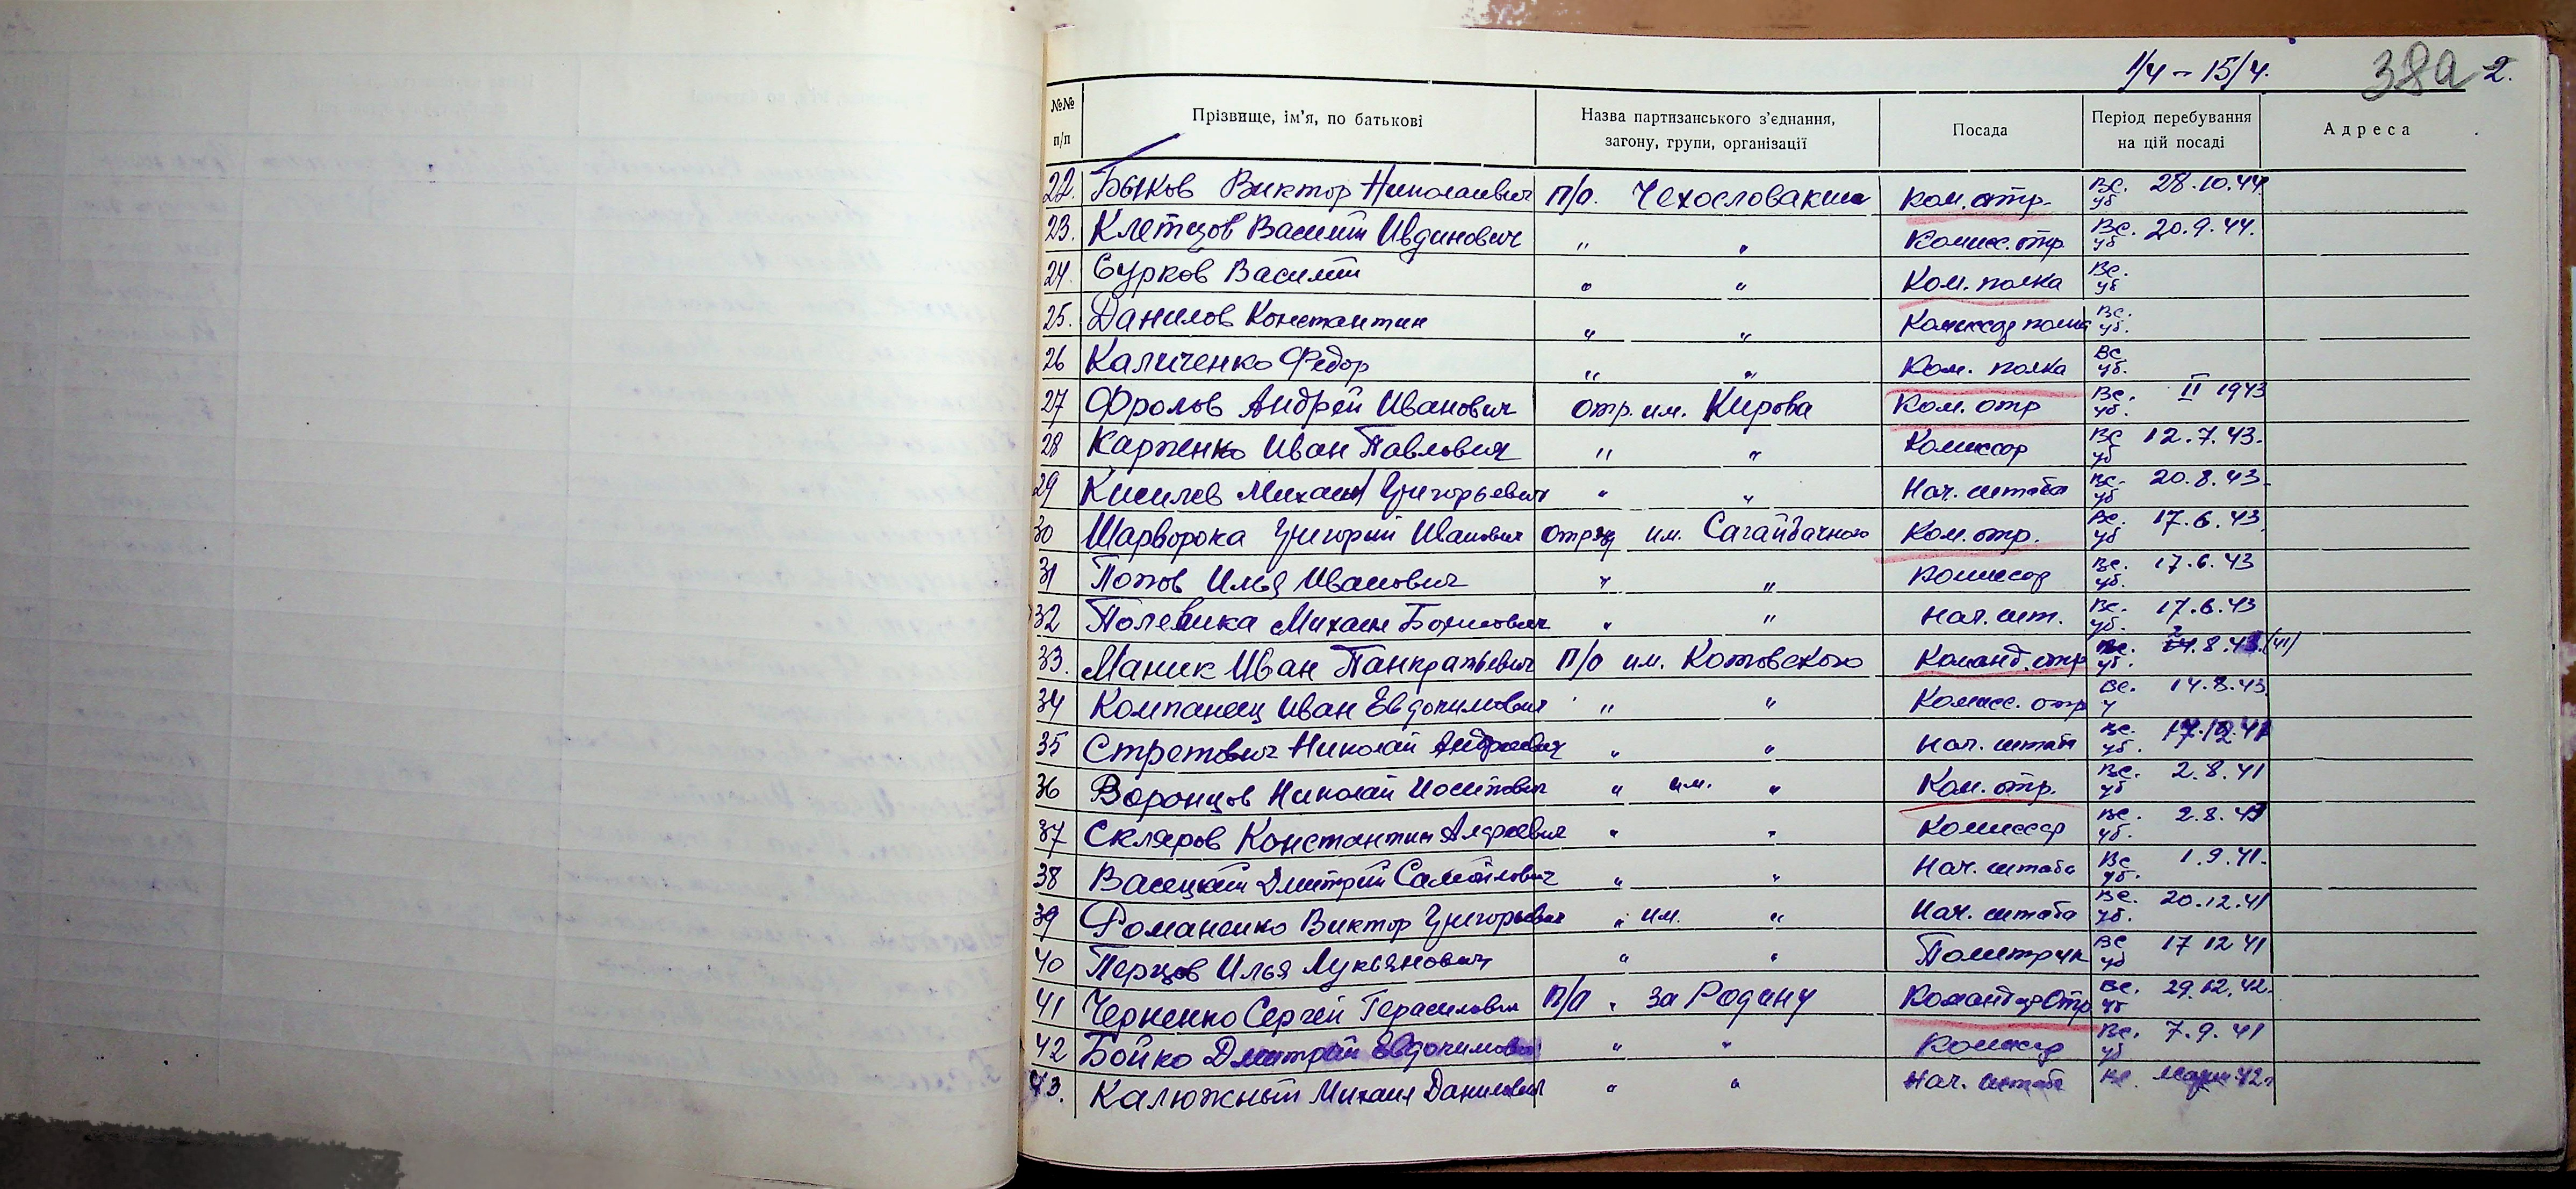 1/4 - 15/4. 38а 2.
№№ п/п Прізвище, ім'я, по батькові Назва партизанського з'єднання, загону, групи, організації Посада Період перебування на цій посаді Адреса
22. Быков Виктор Николаевич п/о. Чехословакии Ком. отр. Вс. 28.10.44 уб
23. Клетцов Василий Ивдинович " " Комисс. отр. Вс. 20.9.44. уб
24. Сурков Василий " " Ком. полка Вс. уб
25. Данилов Константин " " Комиссар полка Вс. уб.
26 Каличенко Федор " " Ком. полка Вс уб.
27 Фролов Андрей Иванович отр. им. Кирова Ком. отр Вс. II 1943 уб.
28 Карпенко Иван Павлович " " Комиссар Вс 12.7.43. уб
29 Киселев Михаил Григорьевич " " Нач. штаба Вс. 20.8.43. уб
30 Шарворока Григорий Иванович Отряд им. Сагайдачного Ком. отр. Вс. 17.6.43 уб
31 Попов Илья Иванович " " Комиссар Вс. 17.6.43 уб.
32 Полевика Михаил Борисович " " Нач. шт. Вс. 17.6.43 уб.
33. Маник Иван Панкратьевич п/о им. Котовского Команд. отр Вс. (41) уб.
34 Компанеец Иван Евдокимович " " Комисс. отр Вс. 14.8.43. у
35 Стретович Николай Андреевич " " Нач. штаба Вс. уб.
36 Воронцов Николай Иосипович " им. " Ком. отр. Вс. 2.8.41 уб
37 Скляров Константин Андреевич " " Комиссар Вс. 2.8. уб.
38 Васецкий Дмитрий Самойлович " " Нач. штаба Вс 1.9.41. уб.
39 Романенко Виктор Григорьевич " им. " Нач. штаба Вс. 20.12.41 уб.
40 Перцов Илья Лукьянович " " Политрук Вс 17 12 41 уб
41 Черненко Сергей Герасимович п/о " За Родину Командир Отр Вс. 29.12.42. уб
42 Бойко Дмитрий Евдокимович " " Комиссар Вс. 7.9.41 уб
43. Калюжный Михаил Данилович " " Нач. штаба Вс. Март 42г